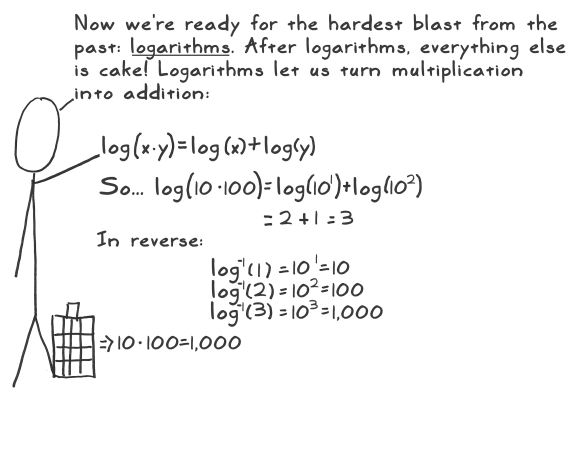 Now we're ready for the hardest blast from the
past: logarithms. After logarithms, everything else
is cake! Logarithms let us turn multiplication
into addition:
log(x·y)=log(x)+log(y)
So... log(10·100)=log(10¹)+log(10²)
=2+1=3
In reverse:
log⁻¹(1)=10¹=10
log⁻¹(2)=10²=100
log⁻¹(3)=10³=1,000
⇒10·100=1,000